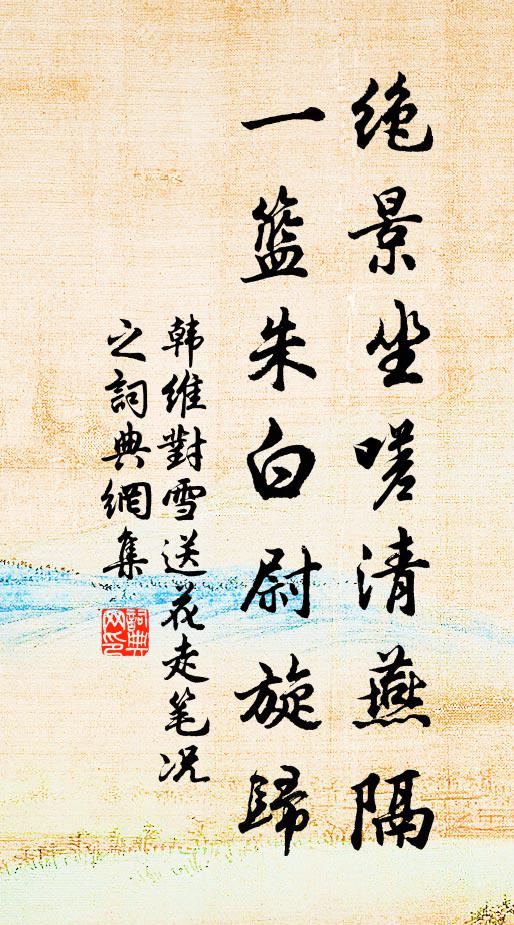 绝景坐嗟清燕隔
一篮朱白尉旋歸
韩維對雪送花走笔况
之詞典網集
詞典
网印